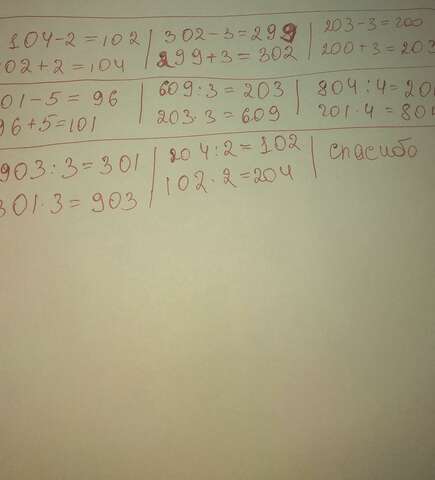 104-2=102 | 302-3=299 | 203-3=200
02+2=104 | 299+3=302 | 200+3=203
01-5=96 | 609:3=203 | 804:4=20
96+5=101 | 203·3=609 | 201·4=80
903:3=301 | 204:2=102 | спасибо
301·3=903 | 102·2=204